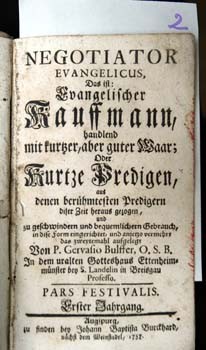 2
NEGOTIATOR
EVANGELICUS,
Das ist:
Evangelischer
Kauffmann,
handlend
mit kurtzer, aber guter Waar;
Oder
Kurtze Predigen,
aus
denen berühmtesten Predigern
diser Zeit heraus gezogen, und
zu geschwindern und bequemlichern Gebrauch,
in dise Form eingerichtet, und anjetzo vermehrt
das zweytemahl aufgelegt
Von P. Gervasio Bulffer, O. S. B.
In dem uralten Gotteshaus Ettenheim-
münster bey S. Landelin in Breisgau
Professo.
PARS FESTIVALIS.
Erster Jahrgang.
Augspurg,
zu finden bey Johann Baptista Burckhard,
nächst dem Weinstadel,